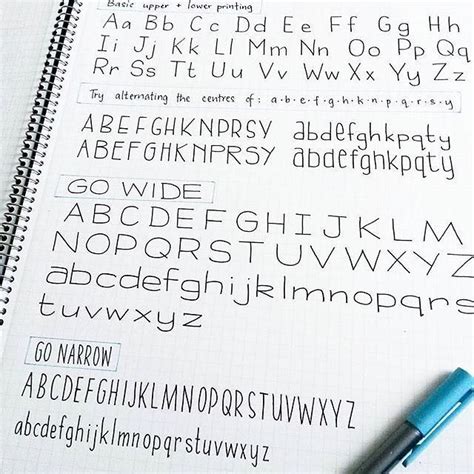 Basic upper + lower printing
Aa Bb Cc Dd Ee Ff Gg Hh
Ii Jj Kk Ll Mm Nn Oo Pp Qq
Rr Ss Tt Uu Vv Ww Xx Yy Zz
Try alternating the centres of: a·b·e·f·g·h·k·n·p·q·r·s·y
ABEFGHKNPRSY abdefghkpqty
ABEFGHKNPRSY abdefghkpqty
GO WIDE
ABCDEFGHIJKLM
NOPQRSTUVWXYZ
abcdefghijklmnopqrs
tuvwxyz
GO NARROW
ABCDEFGHIJKLMNOPQRSTUVWXYZ
abcdefghijklmnopqrstuvwxyz